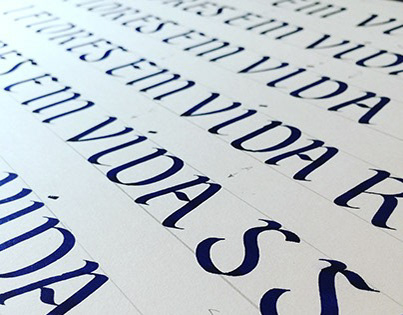 EM VI
RES EM VIDA
FLORES EM VIDA
FLORES EM VIDA R
ES EM VIDA S S
VIDA